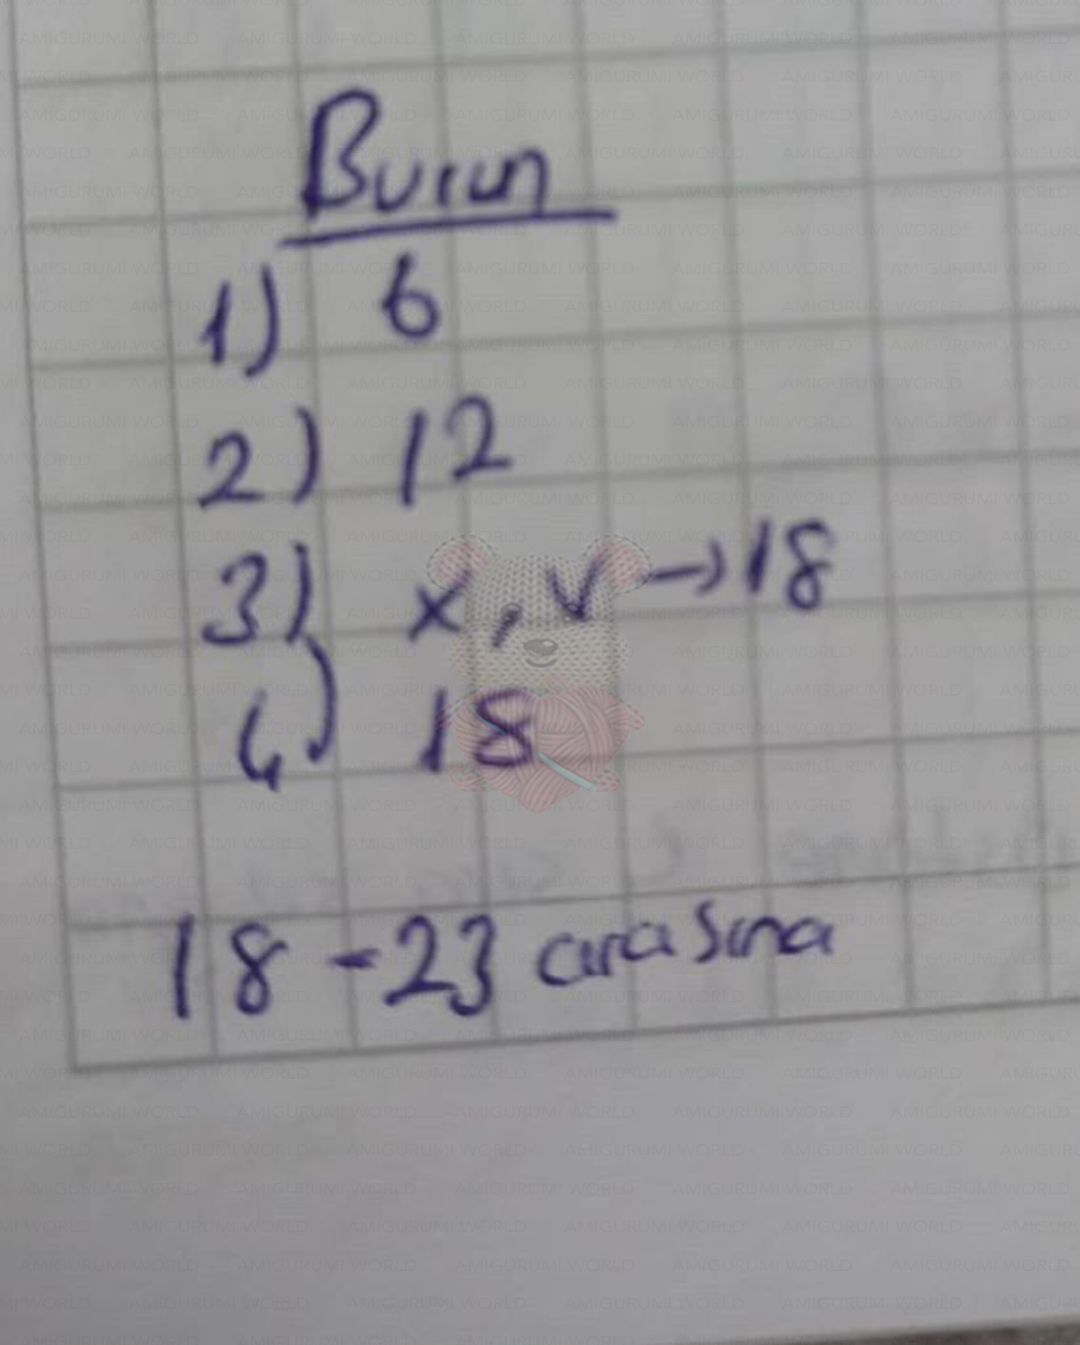 Burun
1) 6
2) 12
3) x, v → 18
4) 18
18-23 arasına